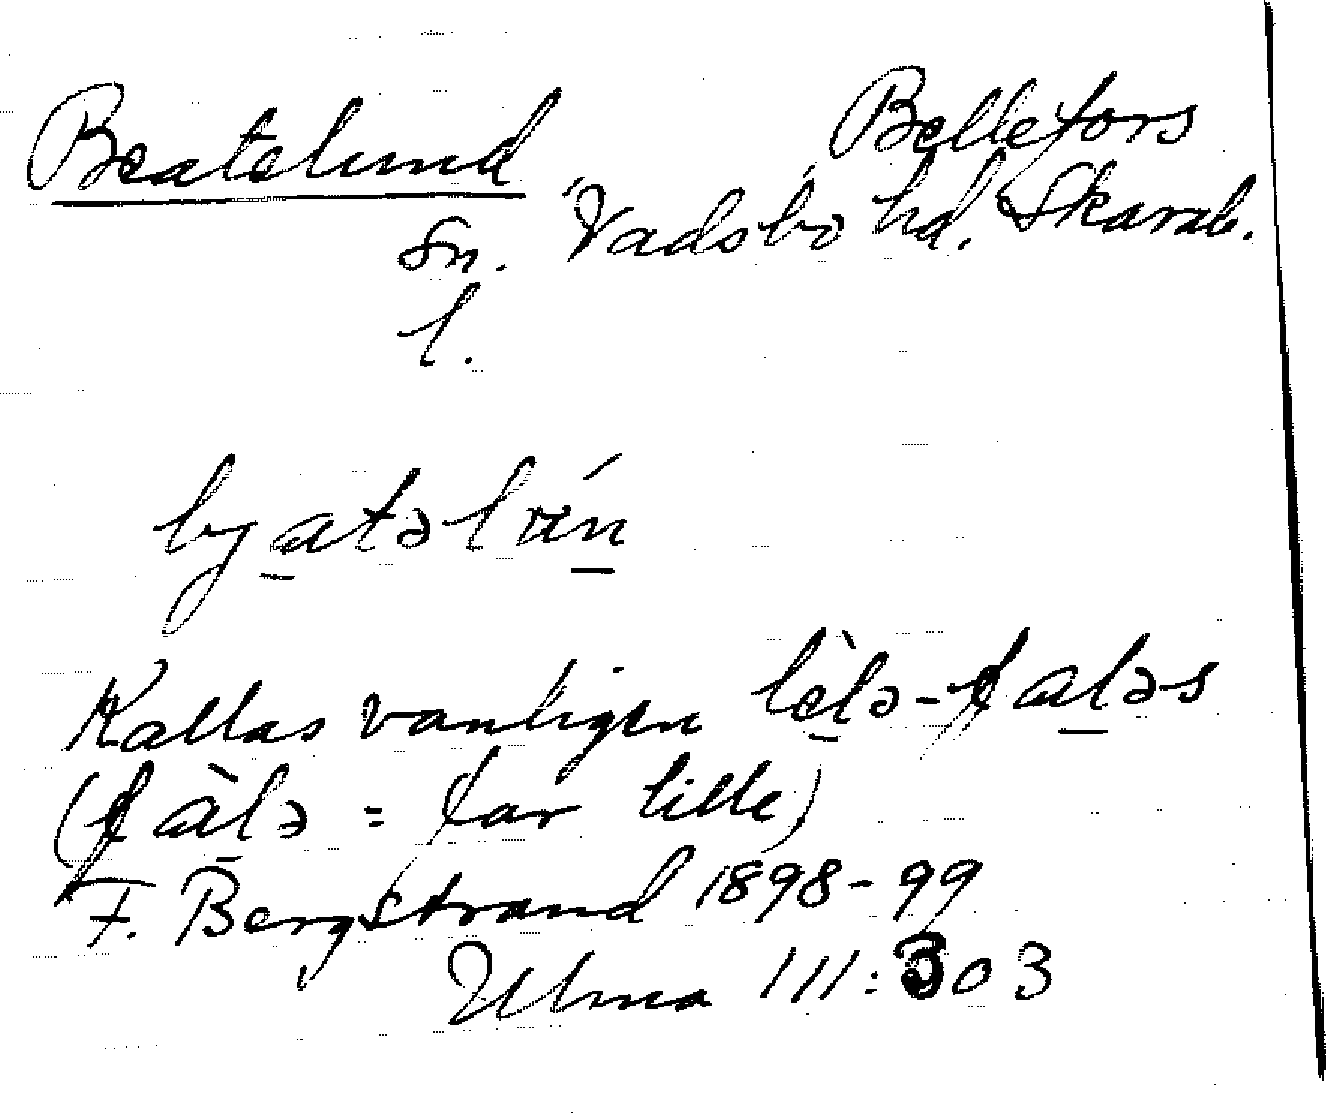 Beatelund Bellefors
sn. Vadsbo hd. Skarab.
l.
bjatəlún
Kallas vanligen lìlə-faləs
(fàlə = far lille)
F. Bergstrand 1898-99
Ulma 111:303